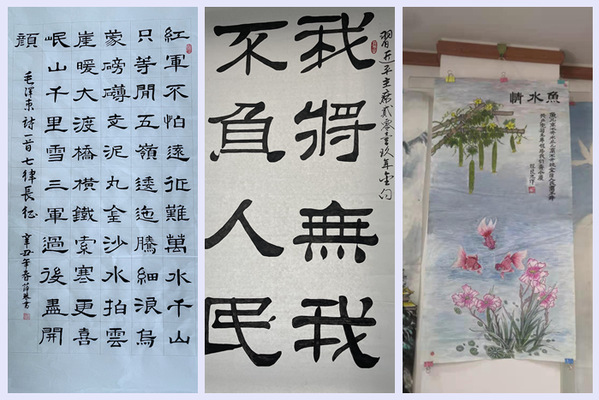 紅軍不怕遠征難萬水千山
只等閒五嶺逶迤騰細浪烏
蒙磅礴走泥丸金沙水拍雲
崖暖大渡橋橫鐵索寒更喜
岷山千里雪三軍過後盡開
顏
毛澤東詩一首七律長征
辛丑年春
習近平主席貳零壹玖年金句
我將無我
不負人民
魚水情